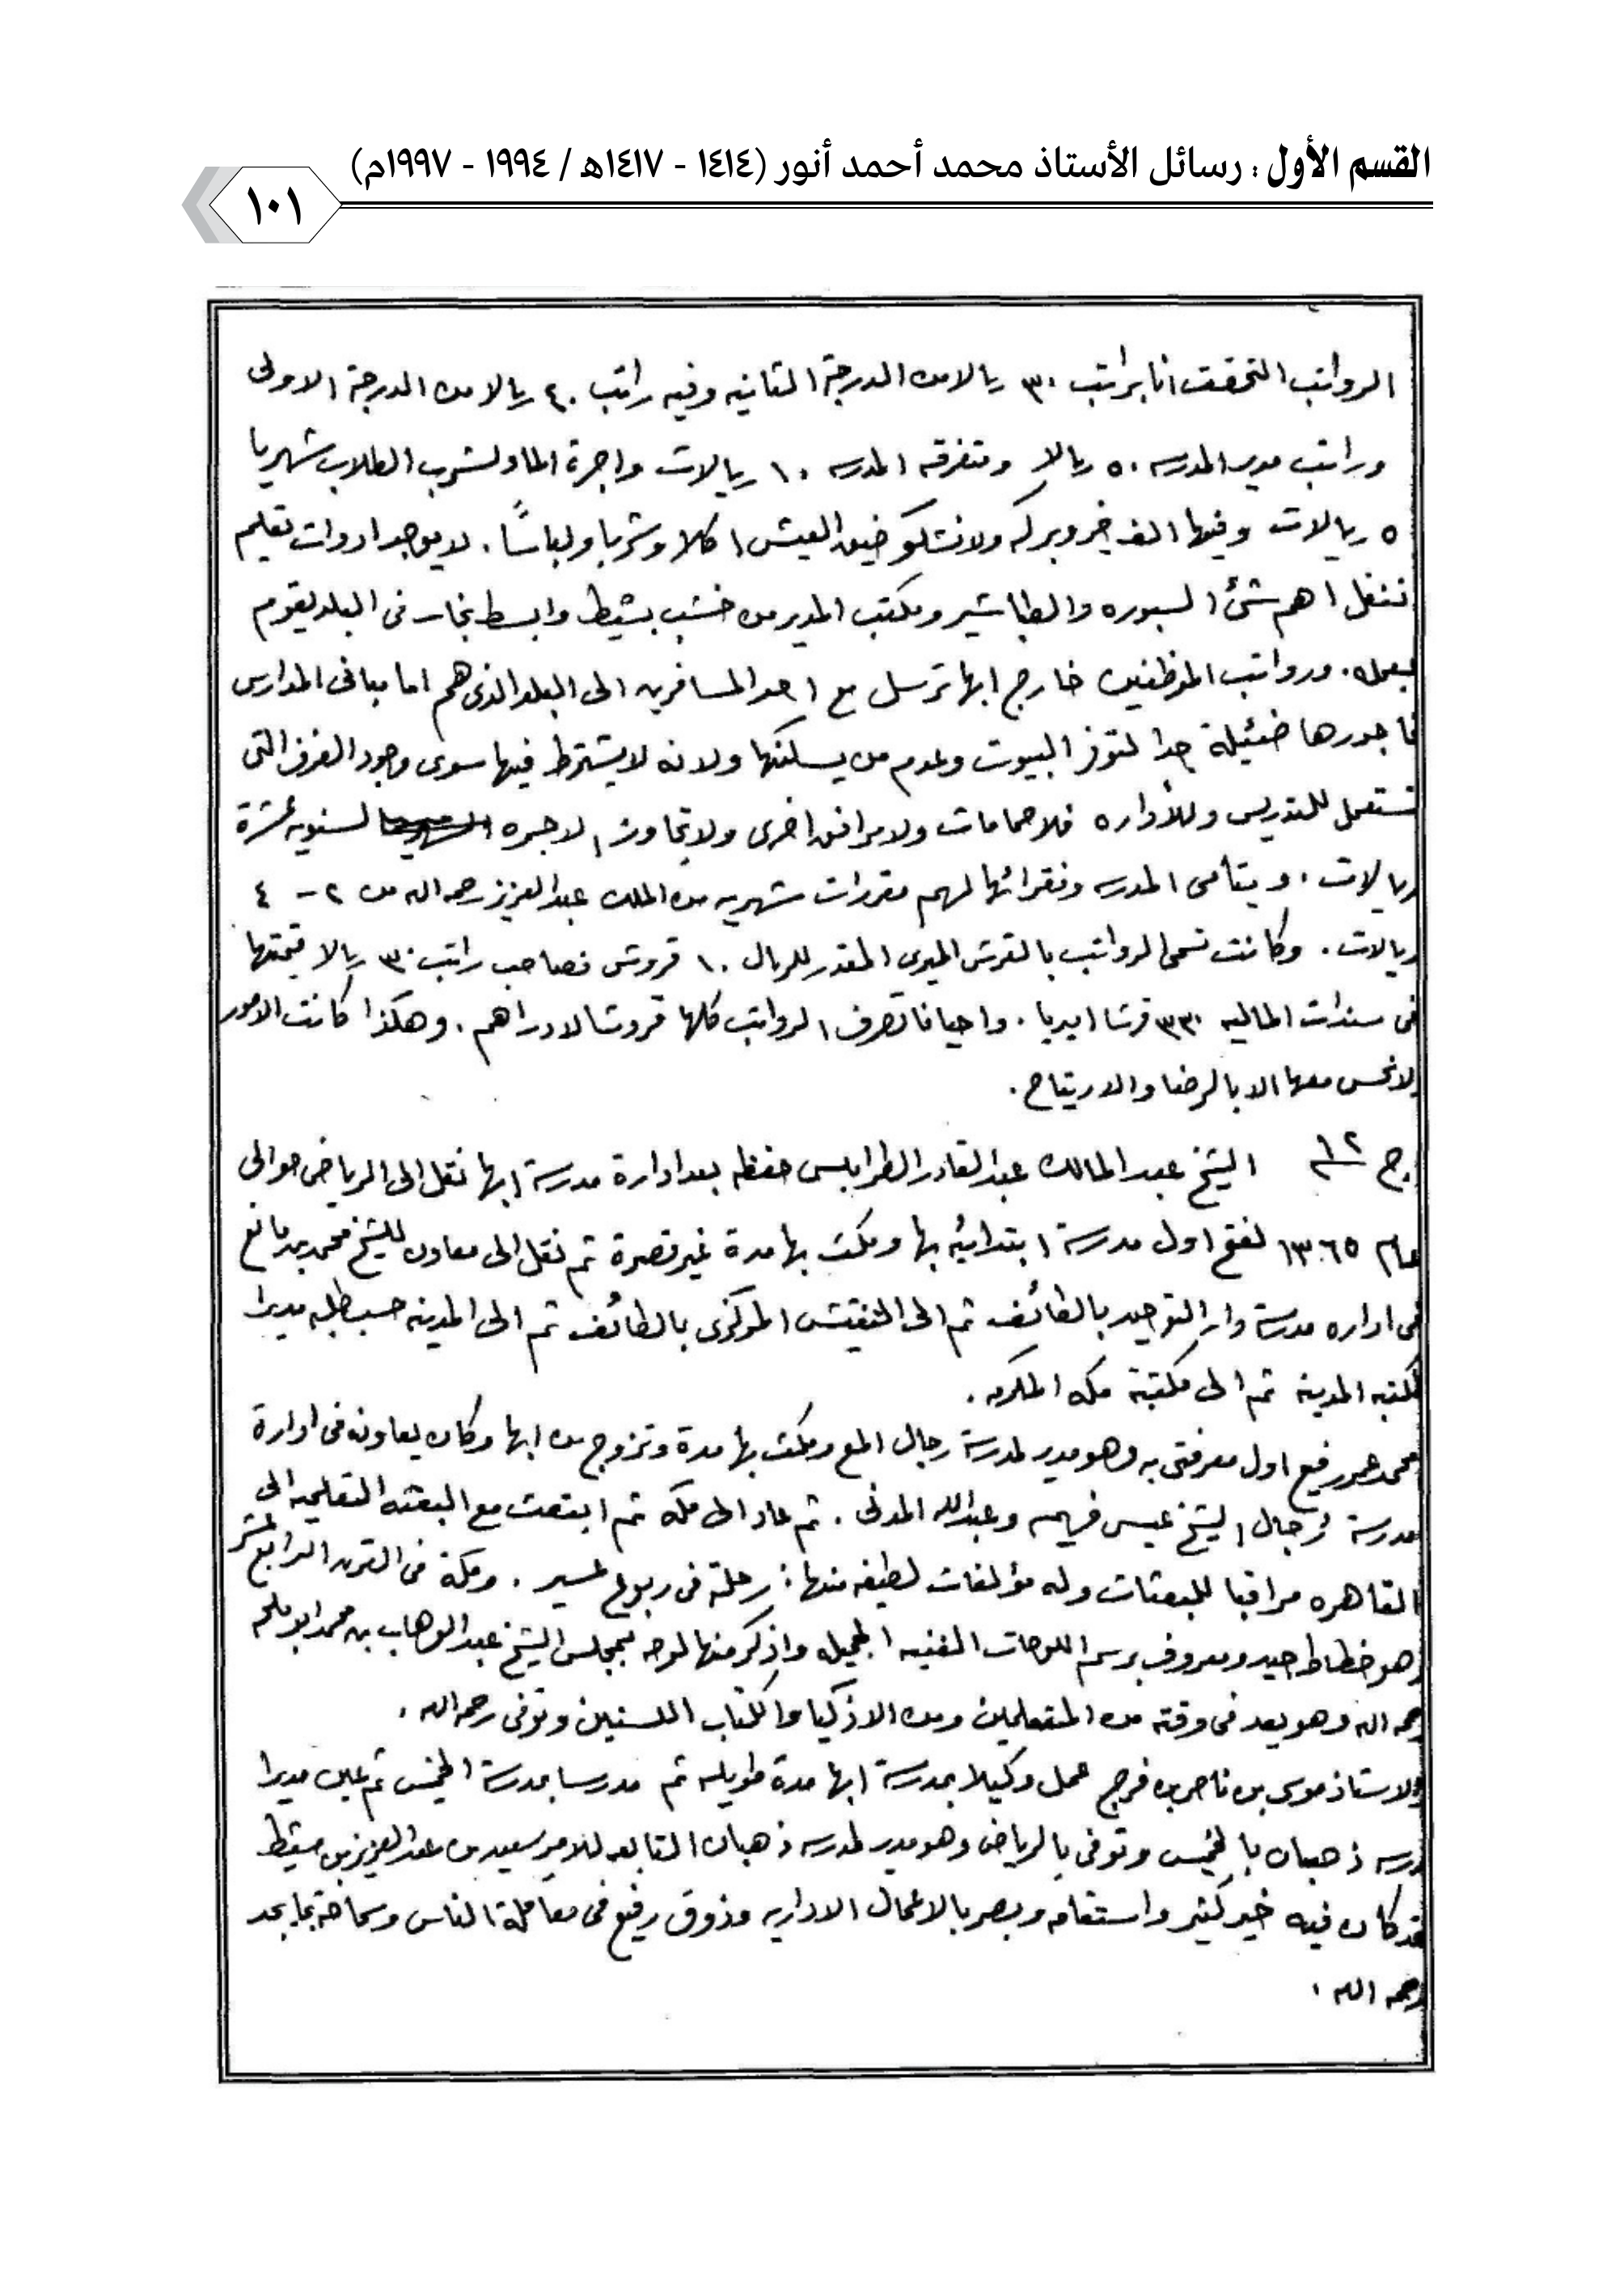 القسم الأول : رسائل الأستاذ محمد أحمد أنور (١٤١٤ - ١٤١٧هـ / ١٩٩٤ - ١٩٩٧م)
١٠١
الرواتب التحقت انا براتب ٣٠ ريالا من الدرجة الثانيه وفيه راتب ٤٠ ريالا من الدرجة الاولى
وراتب مدير المدرسه ٥٠ ريالا ومتفرقه المدرسه ١٠ ريالات واجرة الماء لشرب الطلاب شهريا
٥ ريالات وفيها الف خير وبركه ولا نشكو ضيق العيش اكلا وشربا ولباساً. لا يوجد ادوات تعليم
تنقل اهم شئ السبوره والطباشير ومكتب المدير من خشب بسيط وابسط نجار في البلد يقوم
بعمله. ورواتب الموظفين خارج ابها ترسل مع احد المسافرين الى البلد الذي هم اما مباني المدارس
فاجورها ضئيلة جدا لتوفر البيوت وعدم من يسكنها ولانه لا يشترط فيها سوى وجود الغرف التي
تستعمل للتدريس وللأداره فلا حمامات ولا مرافق اخرى ولا تجاوز الاجره السنويه عشرة
ريالات. ويتامى المدرسه وفقرائها لهم مقررات شهريه من الملك عبد العزيز رحمه الله من ٢ - ٤
ريالات. وكانت تسمى الرواتب بالقرش الميري المقدر للريال ١٠ قروش فصاحب راتب ٣٠ ريالا قيمتها
في سندات الماليه ٣٣٠ قرشا اميريا. واحيانا تصرف الرواتب كلها قروشا لا دراهم. وهكذا كانت الامور
لا نحس معها الا بالرضا والارتياح.
ج ١٢ الشيخ عبد المالك عبد القادر الطرابلسي حفظه بعد ادارة مدرسة ابها نقل الى الرياض حوالي
عام ١٣٦٥ لفتح اول مدرسة ابتدائيه بها ومكث بها مدة غير قصيرة ثم نقل الى معاون للشيخ محمد بن مانع
في اداره مدرسة دار التوحيد بالطائف ثم الى التفتيش المركزي بالطائف ثم الى المدينه حسب طلبه مديرا
لمكتبه المدينه ثم الى مكتبة مكه المكرمه.
محمد عمر رفيع اول معرفتي به وهو مدير لمدرسة رجال المع ومكث بها مدة وتزوج من ابها وكان يعاونه في ادارة
مدرسة رجال الشيخ عيسى فهيم وعبد الله المدني. ثم عاد الى مكه ثم ابتعث مع البعثه التعليميه الى
القاهره مراقبا للبعثات وله مؤلفات لطيفه منها: رحلة في ربوع عسير. ومكة في القرن الرابع عشر
وهو خطاط جيد ومعروف برسم اللوحات الفنيه الجميله واذكر منها لوحه بمجلس الشيخ عبد الوهاب بن محمد ابو ملحه
رحمه الله وهو يعد في وقته من المتعلمين ومن الاذكيا والكتاب اللسنين وتوفى رحمه الله.
والاستاذ موسى بن ناصر بن فرج عمل وكيلا بمدرسة ابها مدة طويله ثم مدرسا بمدرسة الخميس ثم عين مديرا
مدرسه ذهبان بالخميس وتوفى بالرياض وهو مدير لمدرسه ذهبان التابعه للامير سعيد بن عبد العزيز بن مشيط
فقد كان فيه خير كثير واستقامه وبصر بالاعمال الاداريه وذوق رفيع في معاملة الناس وسماحة
رحمه الله.